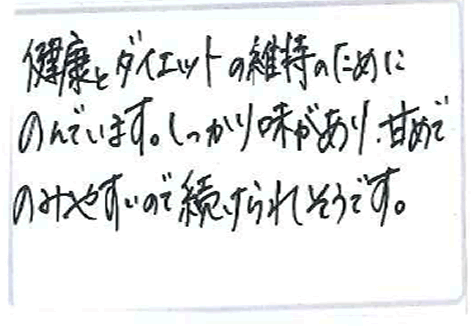 健康とダイエットの維持のために
のんでいます。しっかり味があり、甘めで
のみやすいので続けられそうです。